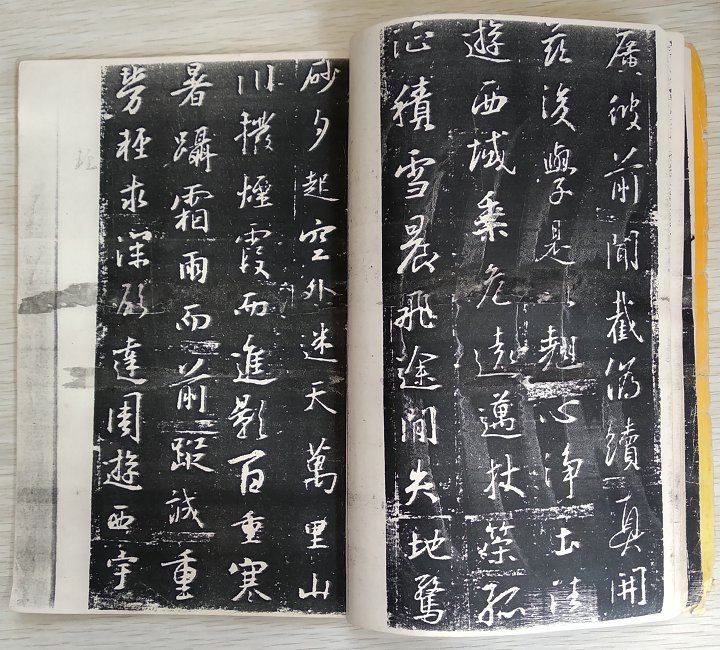 廣彼前聞截偽續真開
茲後學是以翹心淨土法
遊西域乘危遠邁杖策孤
征積雪晨飛途間失地驚
砂夕起空外迷天萬里山
川撥煙霞而進影百重寒
暑躡霜雨而前蹤誠重
勞輕求深願達周遊西宇